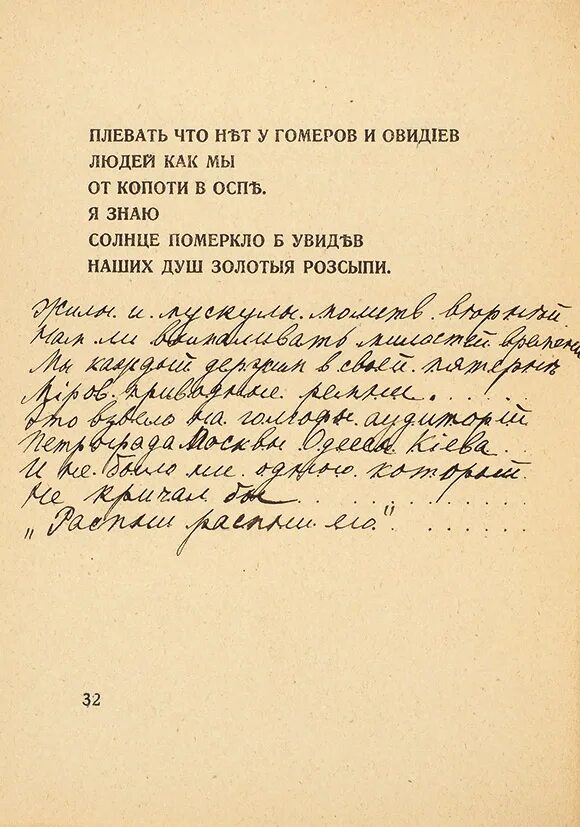 ПЛЕВАТЬ ЧТО НѢТ У ГОМЕРОВ И ОВИДІЕВ
ЛЮДЕЙ КАК МЫ
ОТ КОПОТИ В ОСПѢ.
Я ЗНАЮ
СОЛНЦЕ ПОМЕРКЛО Б УВИДѢВ
НАШИХ ДУШ ЗОЛОТЫЯ РОЗСЫПИ.
Жилы и мускулы молитв вѣрнѣй
Нам ли вымаливать милостей времени
Мы каждый держим в своей пятернѣ
Міров приводные ремни. . . . .
Это взвело на голгофы аудиторій
Петрограда Москвы Одессы Кіева . . .
И не было ни одного который
Не кричал бы . . . . . . . .
„Распни распни его" . . . . . .
32